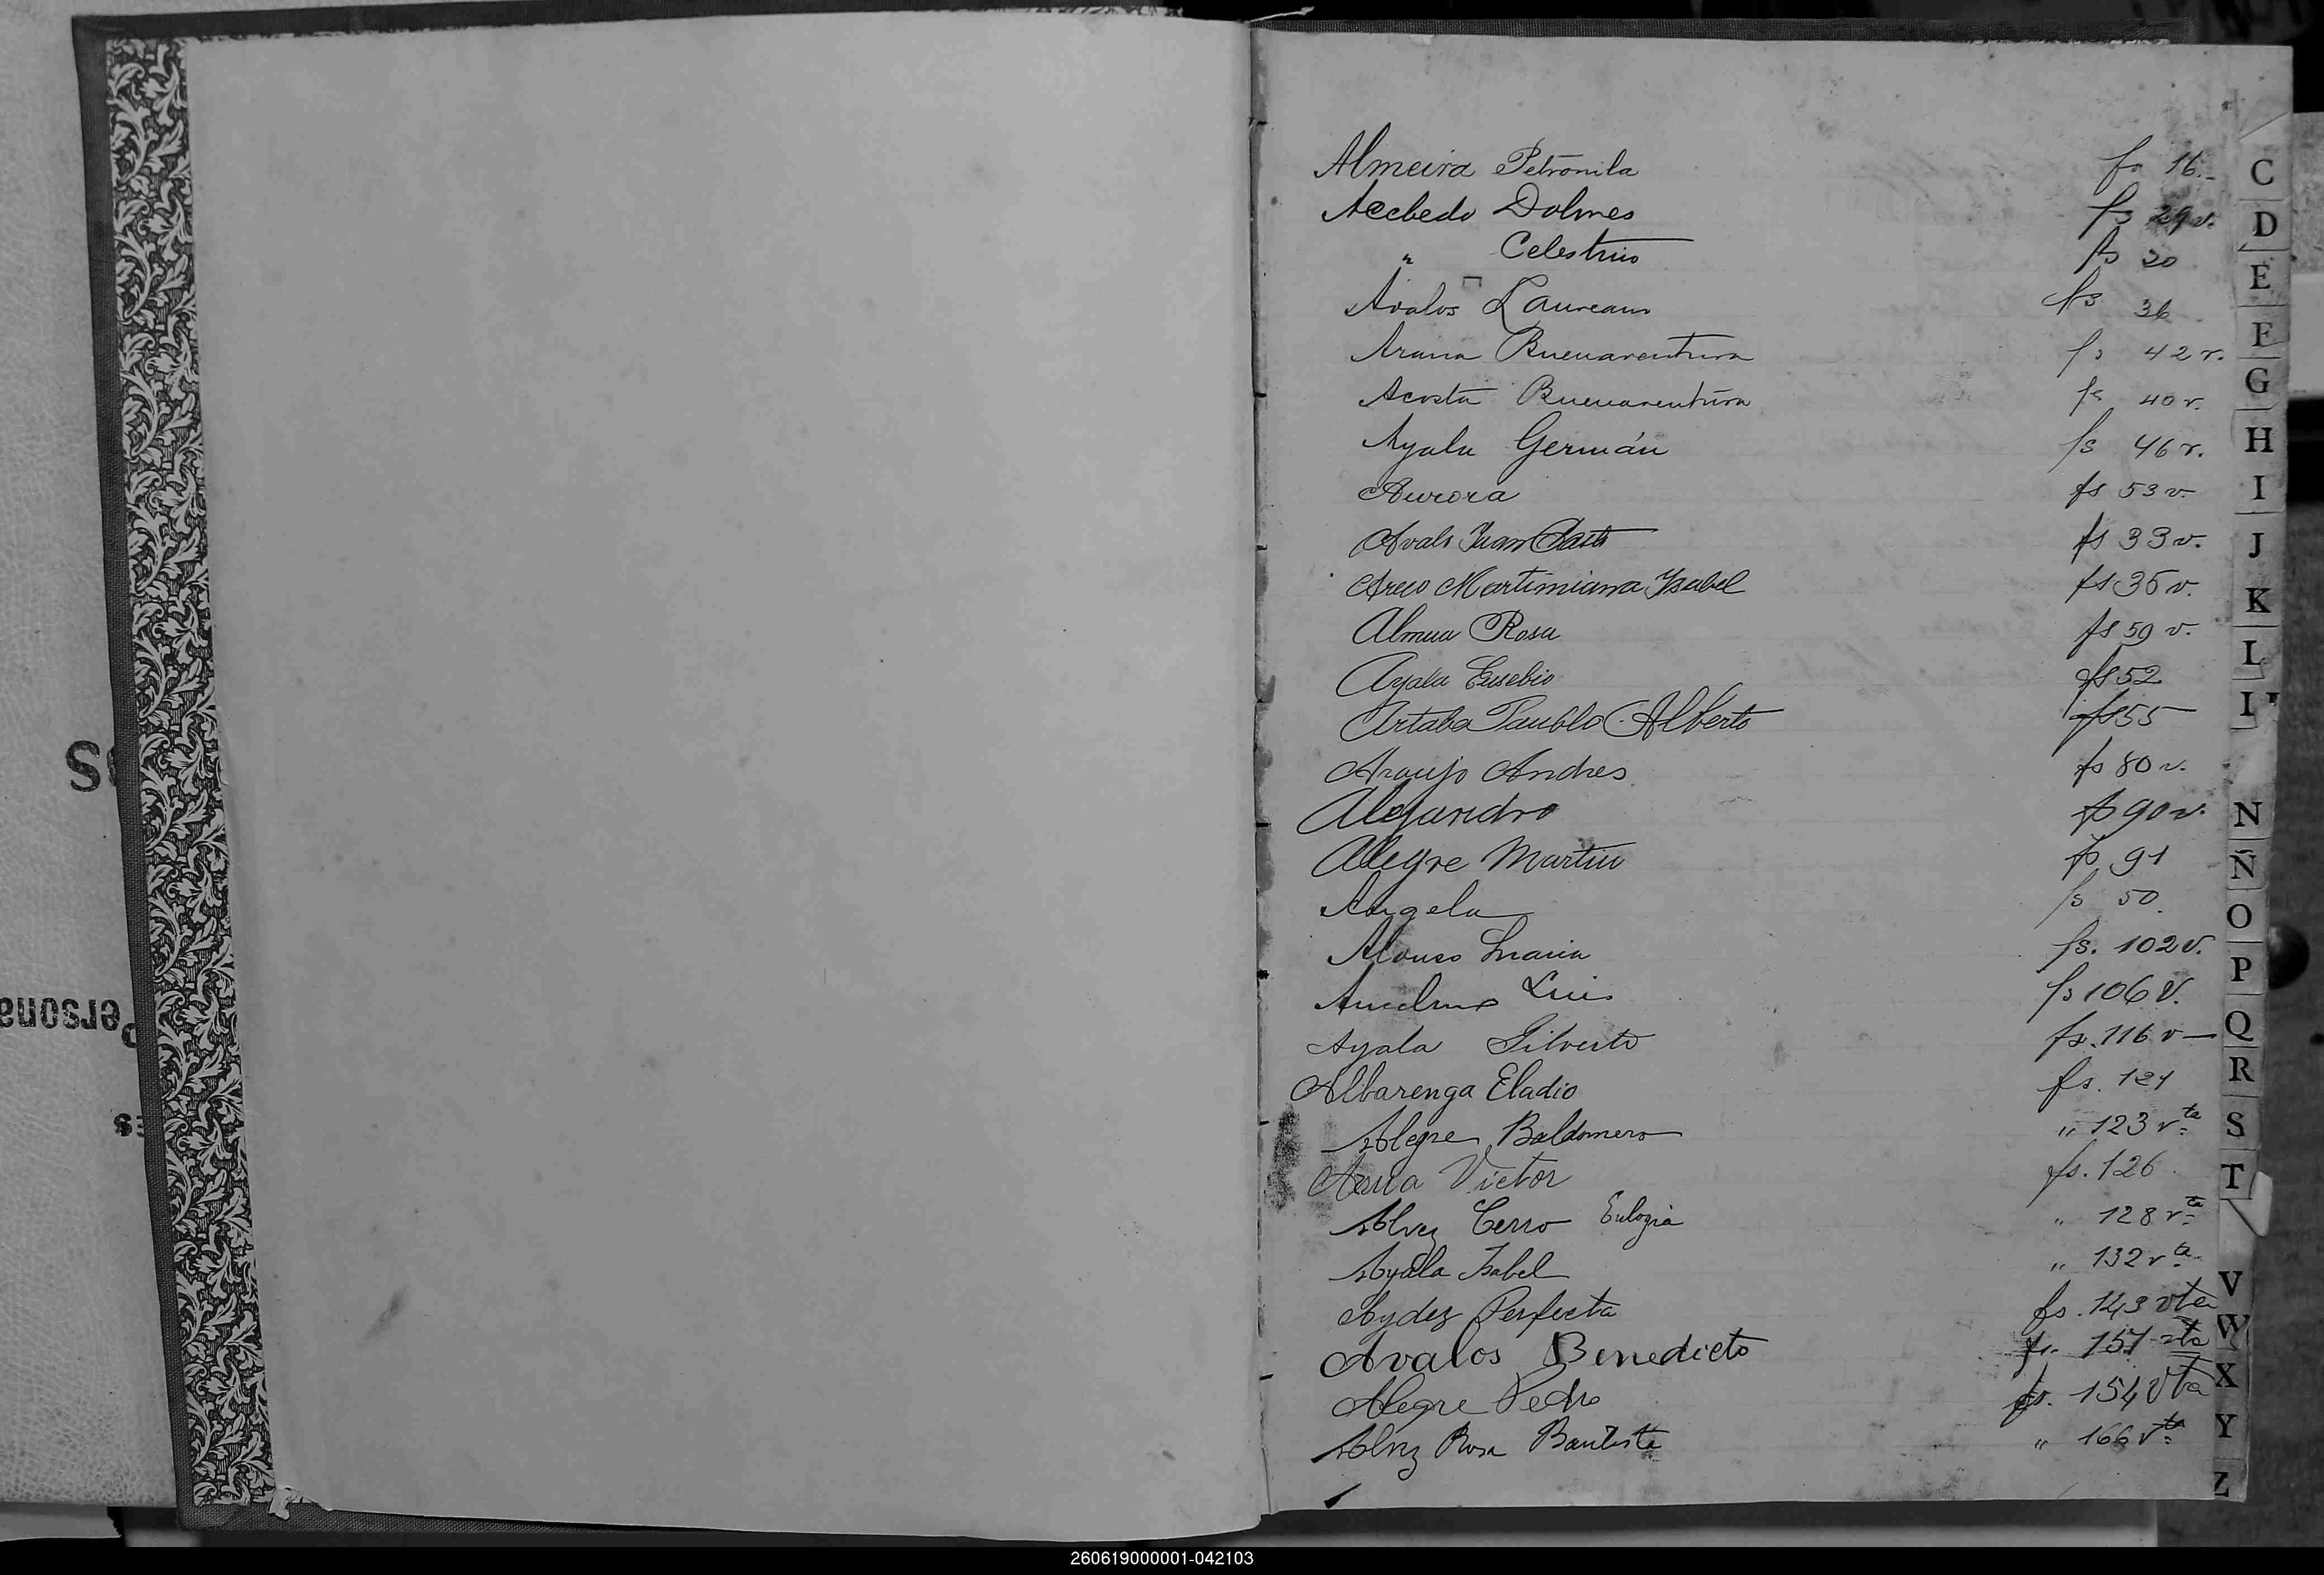 Almeira Petronila fs 16.-
Acebedo Dolores fs 29 v.
" Celestino fs 30
Avalos Laureano fs 36
Arana Buenaventura fs 42 v.
Acosta Buenaventura fs 40 v.
Ayala Germán fs 46 v.
Aurora fs 53 v.
Avalo Juan Casto fs 33 v.
Areco Martimiana Ysabel fs 35 v.
Almua Rosa fs 59 v.
Ayala Eusebio fs 52
Artaba Paublo Alberto fs 55
Araujo Andres fs 80 v.
Alejandro fs 90 v.
Alegre Martin fs 91
Angela fs 50.
Alonso Maria fs. 102 v.
Anselmo Luis fs 106 v.
Ayala Gilverto fs. 116 v —
Albarenga Eladio fs. 121
Alegre Baldomero " 123 vta
Victor fs. 126
Alvez Cerro Eulogia " 128 vta
Ayala Isabel " 132 vta
Aydez Perfecta fs. 143 vta
Avalos Benedicto fs. 151 vta
Alegre Pedro fs. 154 vta
Alvez Rosa Bautista " 166 vta
C
D
E
F
G
H
I
J
K
L
N
Ñ
O
P
Q
R
S
T
V
W
X
Y
Z
260619000001-042103